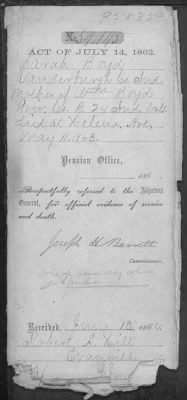 No.
ACT OF JULY 14, 1862.
Sarah Boyd
Vanderburgh Co Ind
Mother of Wm Boyd
Priv. Co. B. 24 Ind. Vols
died at Helena, Ark,
May 11. 1863.
Pension Office,
186
Respectfully referred to the Adjutant
General, for official evidence of service
and death.
Joseph H. Barrett
Commissioner.
Received, June 18 186
Robert D. Hill
Evansville